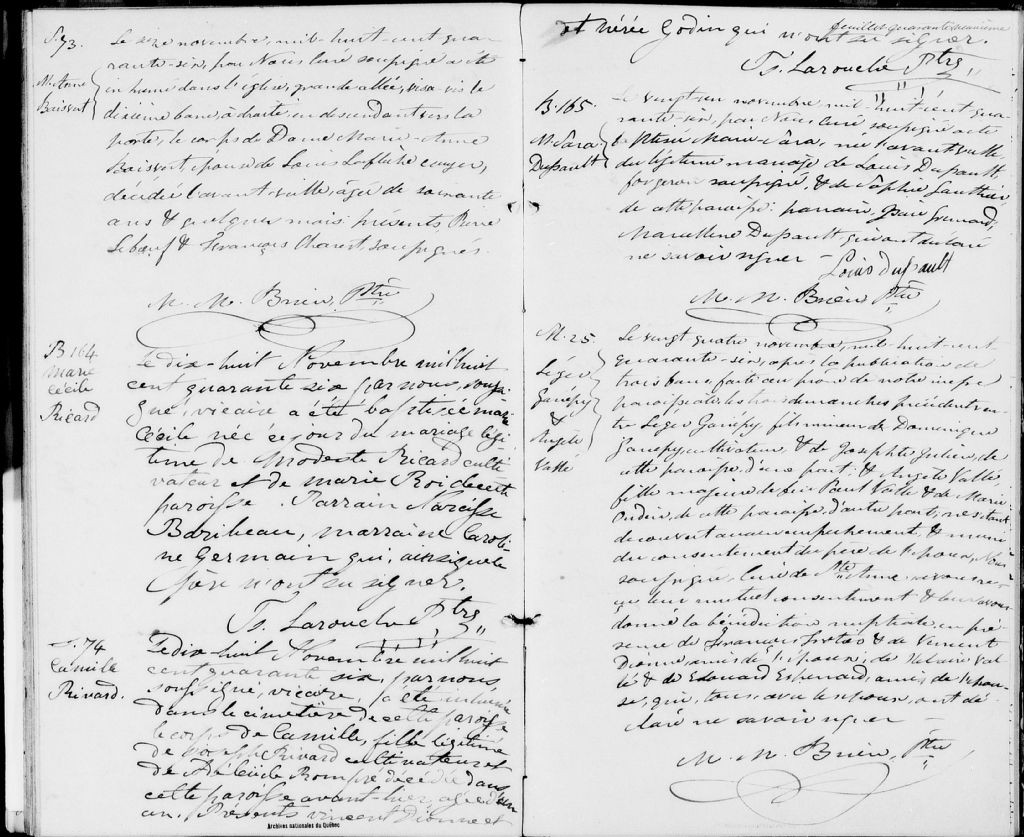 S. 73.
M. Anne
Boisvert
Le seize novembre, mil-huit-cent qua-
rante-six, par Nous Curé soussigné a été
inhumé dans l'église, grande allée, vis-a-vis le
dixième banc, à droite, en descendant vers la
porte, le corps de Dame Marie-Anne
Boisvert, épouse de Louis Laflèche écuyer,
décédée l'avant-veille, âgée de soixante
ans & quelques mois: présents, Pierre
Lebœuf & François Charest, soussignés.
M. M. Brien, Ptre
B 164
Marie
Cécile
Ricard
Le dix-huit Novembre mil huit
cent quarante six par nous, soussi-
gné, vicaire a été baptisée marie
Cécile née ce jour du mariage légi-
time de Modeste Ricard culti
vateur et de marie Roi de cette
paroisse. Parrain Narcisse
Baribeau, marraine Caroli-
ne Germain qui, ainsi que le
père n'ont su signer.
Ts. Larouche Ptre
S. 74
Camille
Rivard.
Le dix-huit Novembre mil huit
cent quarante six, par nous
soussigné, vicaire, a été inhumée
dans le cimetière de cette paroisse
le corps de Camille, fille légitime
de Joseph Rivard cultivateur et
de Adélaide Rompré décédée dans
cette paroisse avant-hier, agée d'un
an. Présents vincent Dionne et
Archives nationales du Québec
feuillet quarante
et Nérée Godin qui n'ont su signer.
Ts. Larouche Ptre
B. 165.
M. Sara
Dussault
Le vingt-un novembre mil-huit-cent qua-
rante-six, par Nous, Curé, soussigné a été
baptisée Marie Sara, née l'avant-veille
du légitime mariage de Louis Dussault
forgeron soussigné, & de Sophie Gauthier,
de cette paroisse: parrain,
Marcelline Dussault qui ont déclaré
ne savoir signer -
Louis dussault
M. M. Brien Ptre
M. 25
Léger
Janépy
&
Angèle
Vallé
Le vingt quatre novembre, mil-huit-cent
quarante-six, après la publication de
trois bans, faite au prone de notre messe
paroissiale, les trois dimanches précédents en-
tre Léger Janépy, fils mineur de Dominique
Janépy cultivateur, & de Josephte Julien, de
cette paroisse, d'une part; & Angèle Vallé,
fille majeure de feu Paul Vallé & de Marie
de cette paroisse, d'autre part; n'étant
découvert aucun empêchement, & muni
du consentement du père de l'époux, Nous
soussigné, Curé de Ste Anne, avons re-
çu leur mutuel consentement & leur avons
donné la bénédiction nuptiale en pré-
sence de François & de Vincent
Dionne, amis de l'époux; de Hilaire Val
lé & de Edouard amis de l'épou-
se, qui, tous, avec les époux, ont dé-
claré ne savoir signer -
M. M. Brien, Ptre